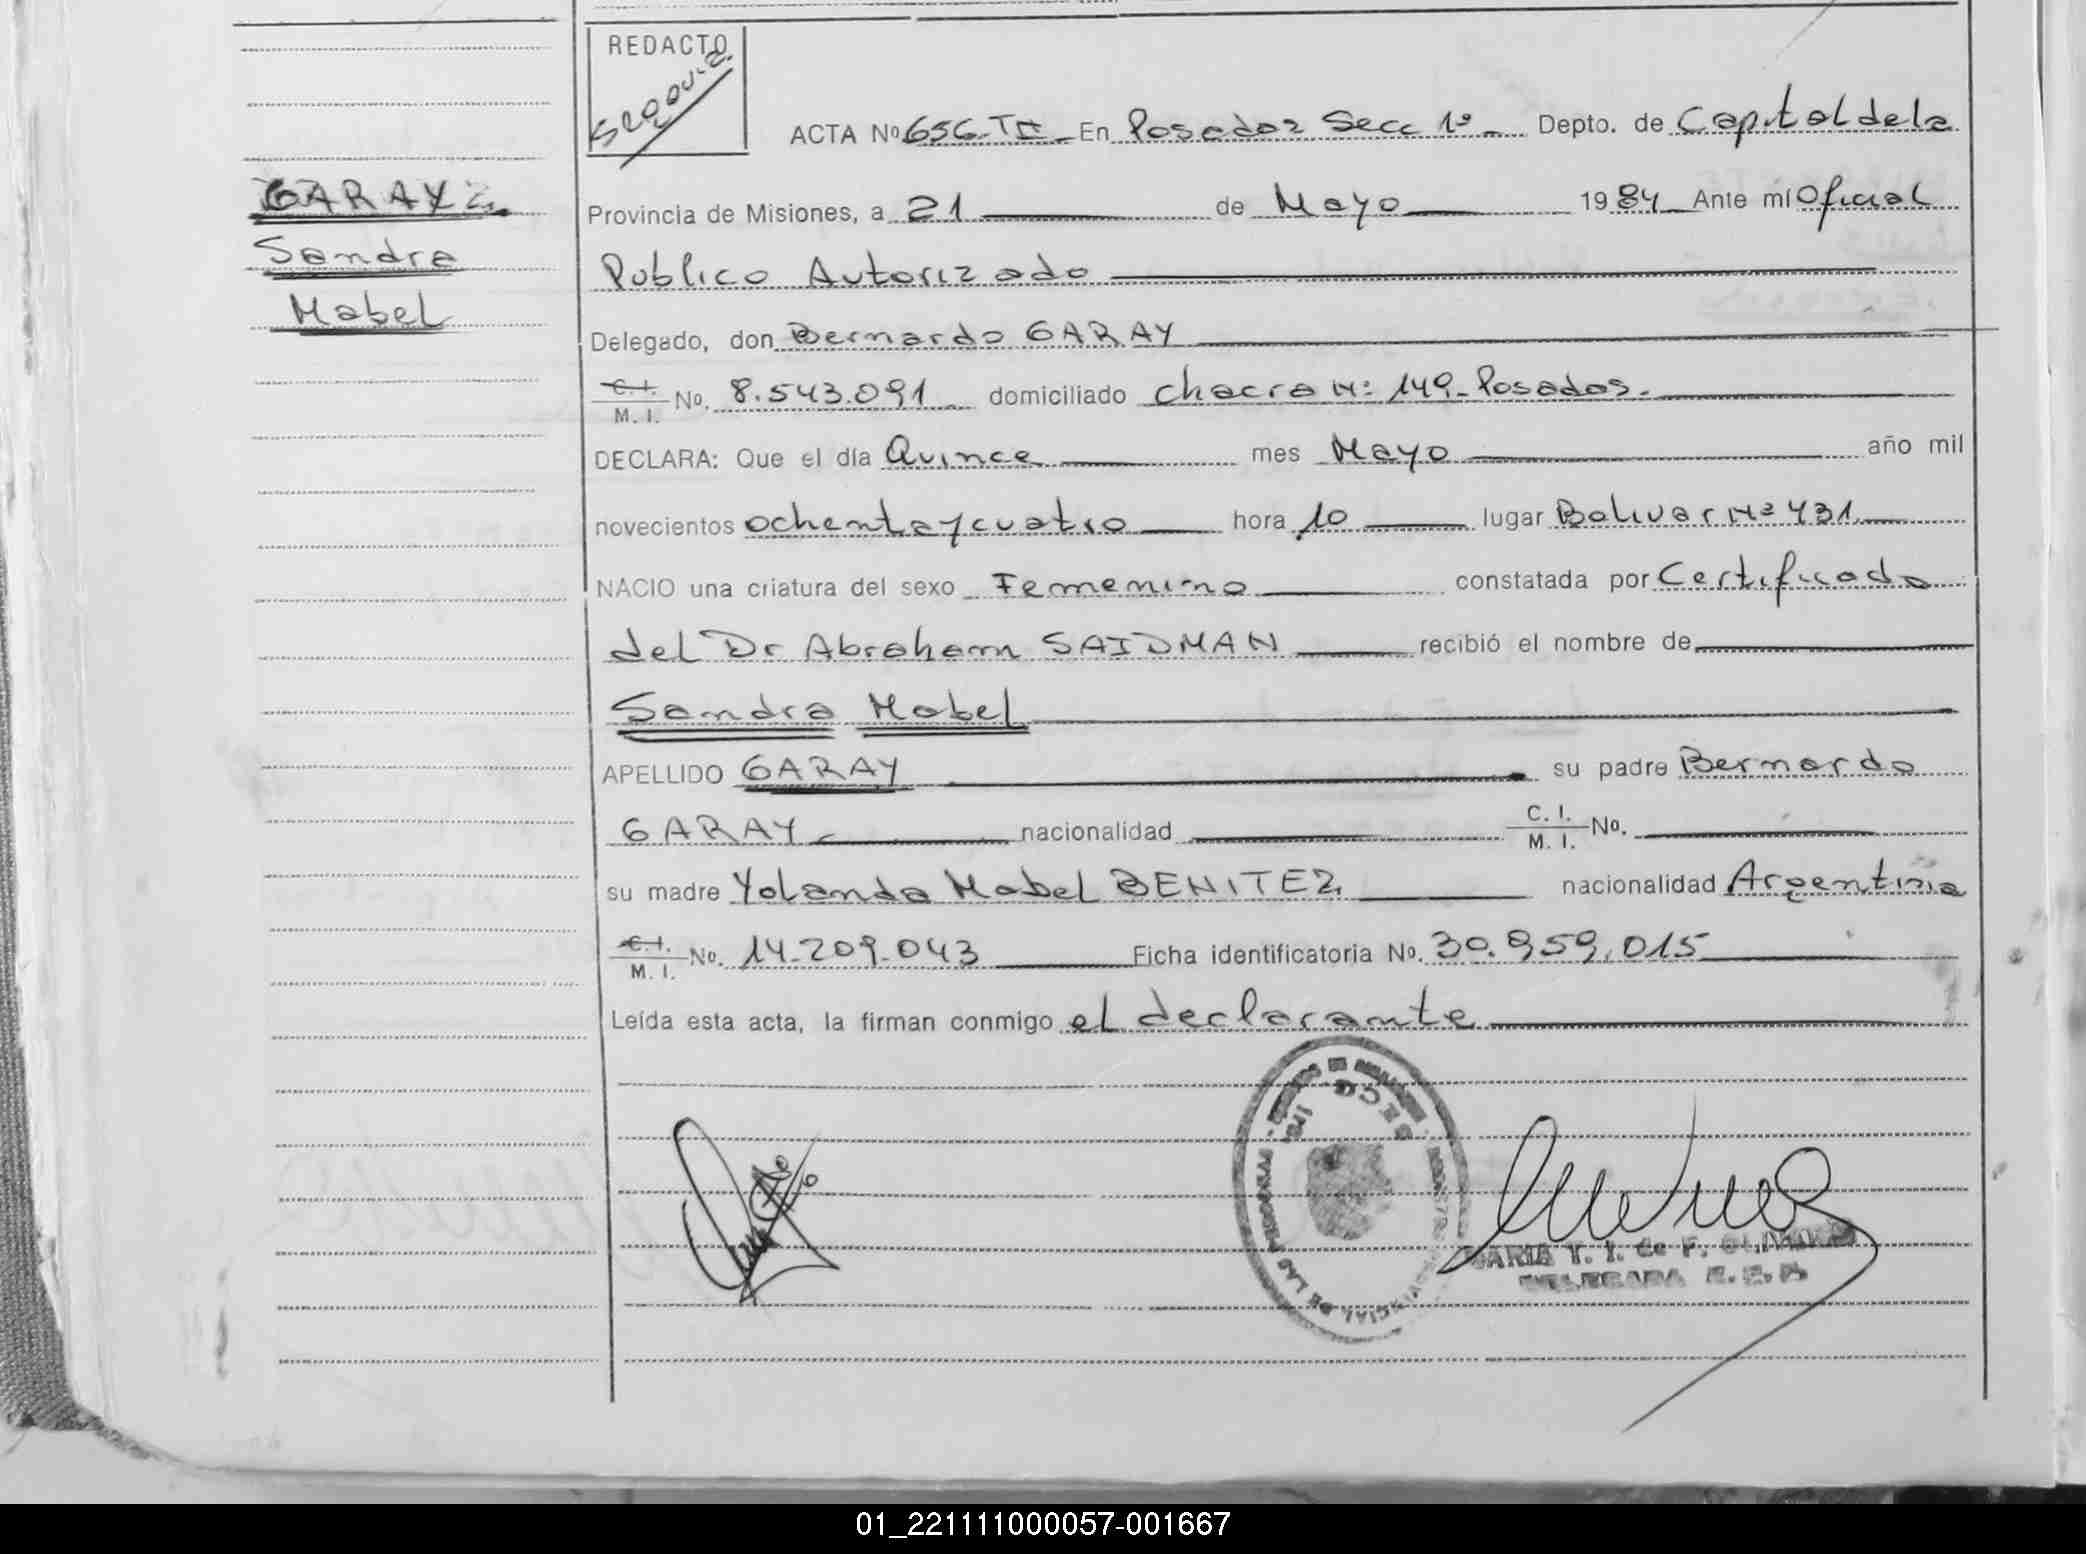 REDACTO
ACTA Nº 656-TII En Posadas Secc 1º Depto. de Capital de la
GARAY
Sandra
Mabel
Provincia de Misiones, a 21 de Mayo 1984 Ante mí Oficial
Publico Autorizado
Delegado, don Bernardo GARAY
C. I. M. I. No. 8.543.091 domiciliado Chacra Nº 149 - Posadas.
DECLARA: Que el día Quince mes Mayo año mil
novecientos ochenta y cuatro hora 10 lugar Bolivar Nº 431
NACIO una criatura del sexo Femenino constatada por Certificado
del Dr Abraham SAIDMAN recibió el nombre de
Sandra Mabel
APELLIDO GARAY su padre Bernardo
GARAY nacionalidad C. I. M. I. No.
su madre Yolanda Mabel BENITEZ nacionalidad Argentina
C. I. M. I. No. 14.209.043 Ficha identificatoria No. 30.959.015
Leída esta acta, la firman conmigo el declarante
MARIA T. I. de F.
DELEGADA
01_221111000057-001667